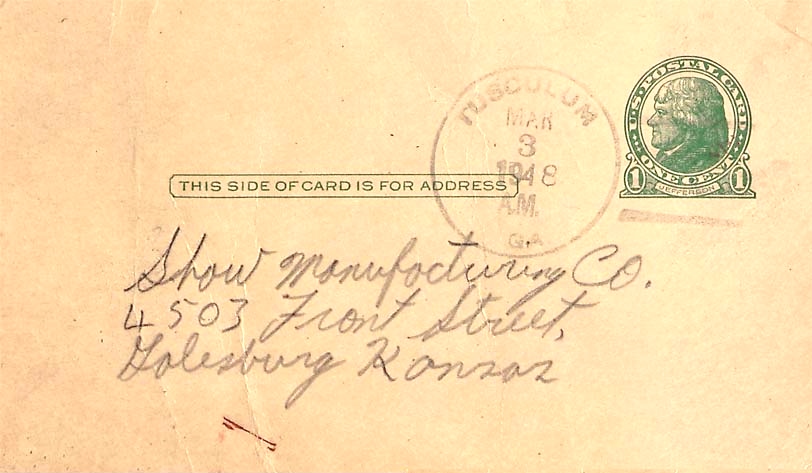 U.S. POSTAL CARD
ONE CENT
1 JEFFERSON 1
TUSCULUM
MAR
3
1948
A.M.
GA
THIS SIDE OF CARD IS FOR ADDRESS
Show Manufacturing Co.
4503 Front Street,
Galesburg Kansas